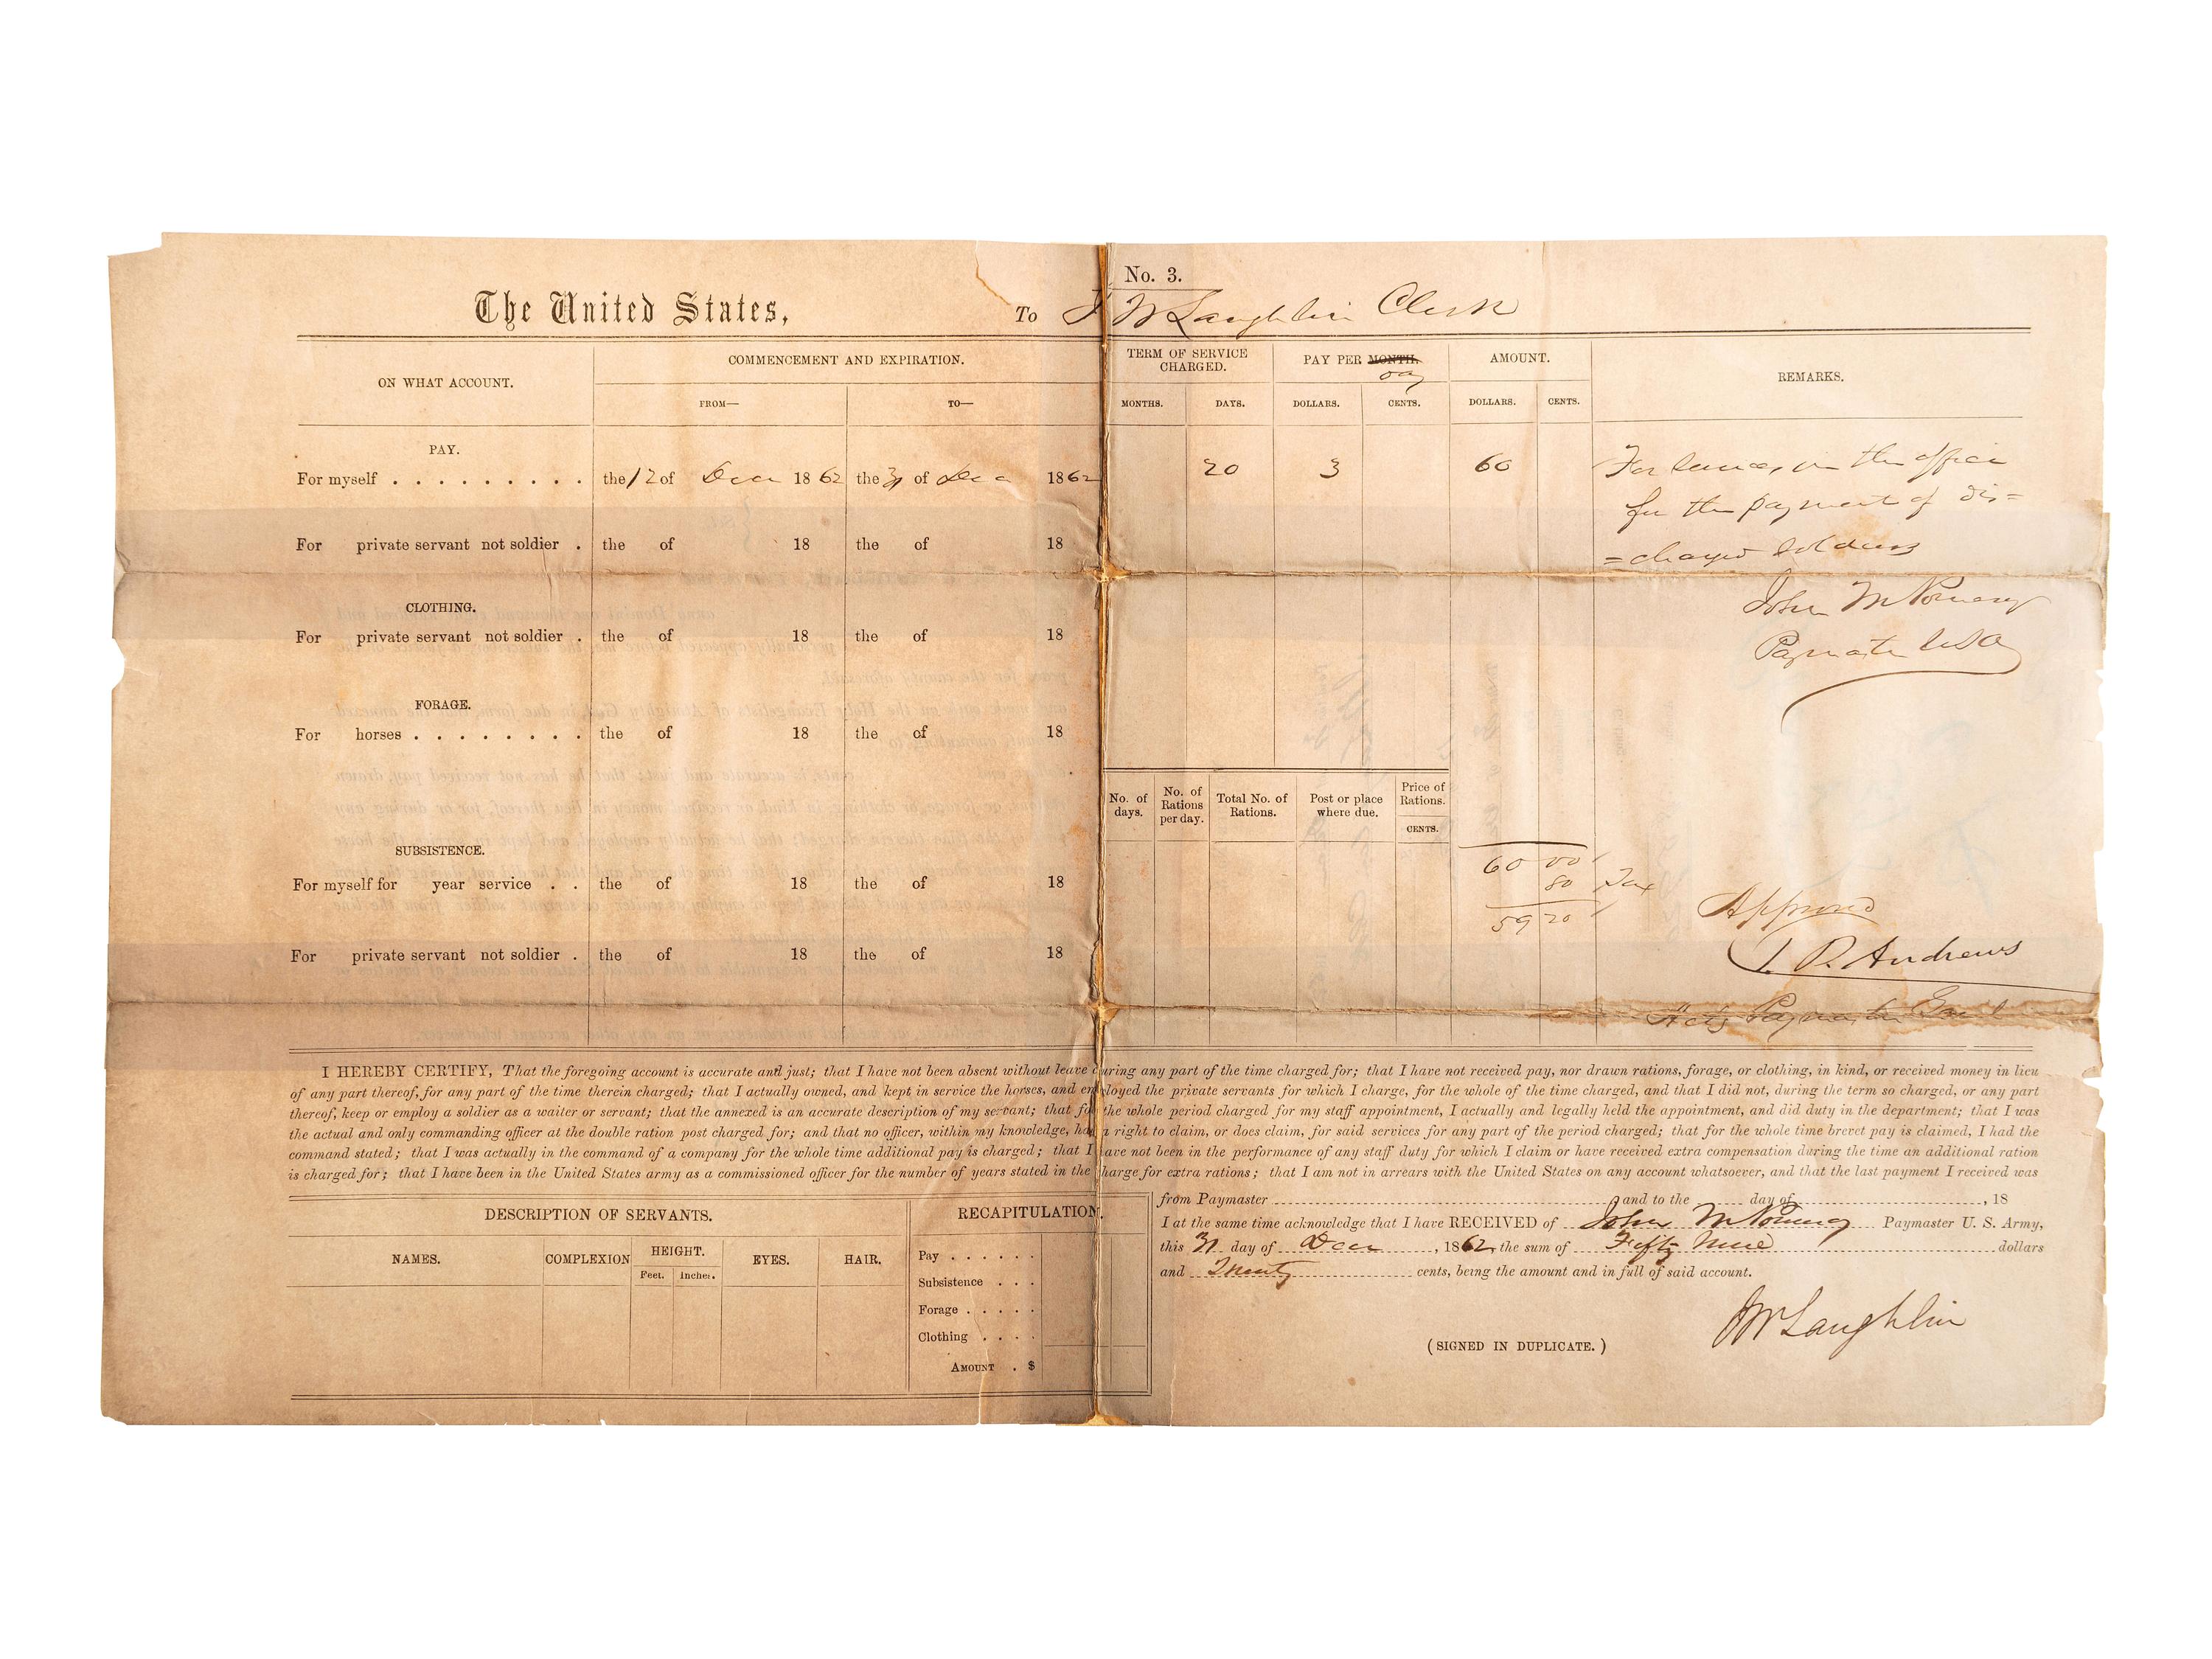 No. 3.
The United States, To J McLaughlin Clerk
ON WHAT ACCOUNT.
COMMENCEMENT AND EXPIRATION.
FROM—
TO—
TERM OF SERVICE CHARGED.
MONTHS. DAYS.
PAY PER MONTH.
Day
DOLLARS. CENTS.
AMOUNT.
DOLLARS. CENTS.
REMARKS.
PAY.
For myself . . . . . . . . . the 12 of Decr 1862 the 31 of Dec 1862 20 3 60
For services in the office
for the payment of dis=
=charged Soldiers
John M Pomeroy
Paymaster USA
For private servant not soldier . the of 18 the of 18
CLOTHING.
For private servant not soldier . the of 18 the of 18
FORAGE.
For horses . . . . . . . . the of 18 the of 18
No. of days.
No. of Rations per day.
Total No. of Rations.
Post or place where due.
Price of Rations.
CENTS.
SUBSISTENCE.
60 00
80 Tax
59 20
For myself for year service . . the of 18 the of 18
Approved
T. P. Andrews
Actg Paymaster Genl
For private servant not soldier . the of 18 the of 18
I HEREBY CERTIFY, That the foregoing account is accurate and just; that I have not been absent without leave during any part of the time charged for; that I have not received pay, nor drawn rations, forage, or clothing, in kind, or received money in lieu
of any part thereof, for any part of the time therein charged; that I actually owned, and kept in service the horses, and employed the private servants for which I charge, for the whole of the time charged, and that I did not, during the term so charged, or any part
thereof, keep or employ a soldier as a waiter or servant; that the annexed is an accurate description of my servant; that for the whole period charged for my staff appointment, I actually and legally held the appointment, and did duty in the department; that I was
the actual and only commanding officer at the double ration post charged for; and that no officer, within my knowledge, has a right to claim, or does claim, for said services for any part of the period charged; that for the whole time brevet pay is claimed, I had the
command stated; that I was actually in the command of a company for the whole time additional pay is charged; that I have not been in the performance of any staff duty for which I claim or have received extra compensation during the time an additional ration
is charged for; that I have been in the United States army as a commissioned officer for the number of years stated in the charge for extra rations; that I am not in arrears with the United States on any account whatsoever, and that the last payment I received was
from Paymaster and to the day of , 18
I at the same time acknowledge that I have RECEIVED of John M Pomeroy Paymaster U. S. Army,
this 31 day of Decr , 1862, the sum of Fifty Nine dollars
and Twenty cents, being the amount and in full of said account.
J McLaughlin
(SIGNED IN DUPLICATE.)
DESCRIPTION OF SERVANTS.
NAMES. COMPLEXION HEIGHT. EYES. HAIR.
Feet. Inches.
RECAPITULATION.
Pay . . . . . .
Subsistence . . .
Forage . . . . .
Clothing . . . .
AMOUNT . $